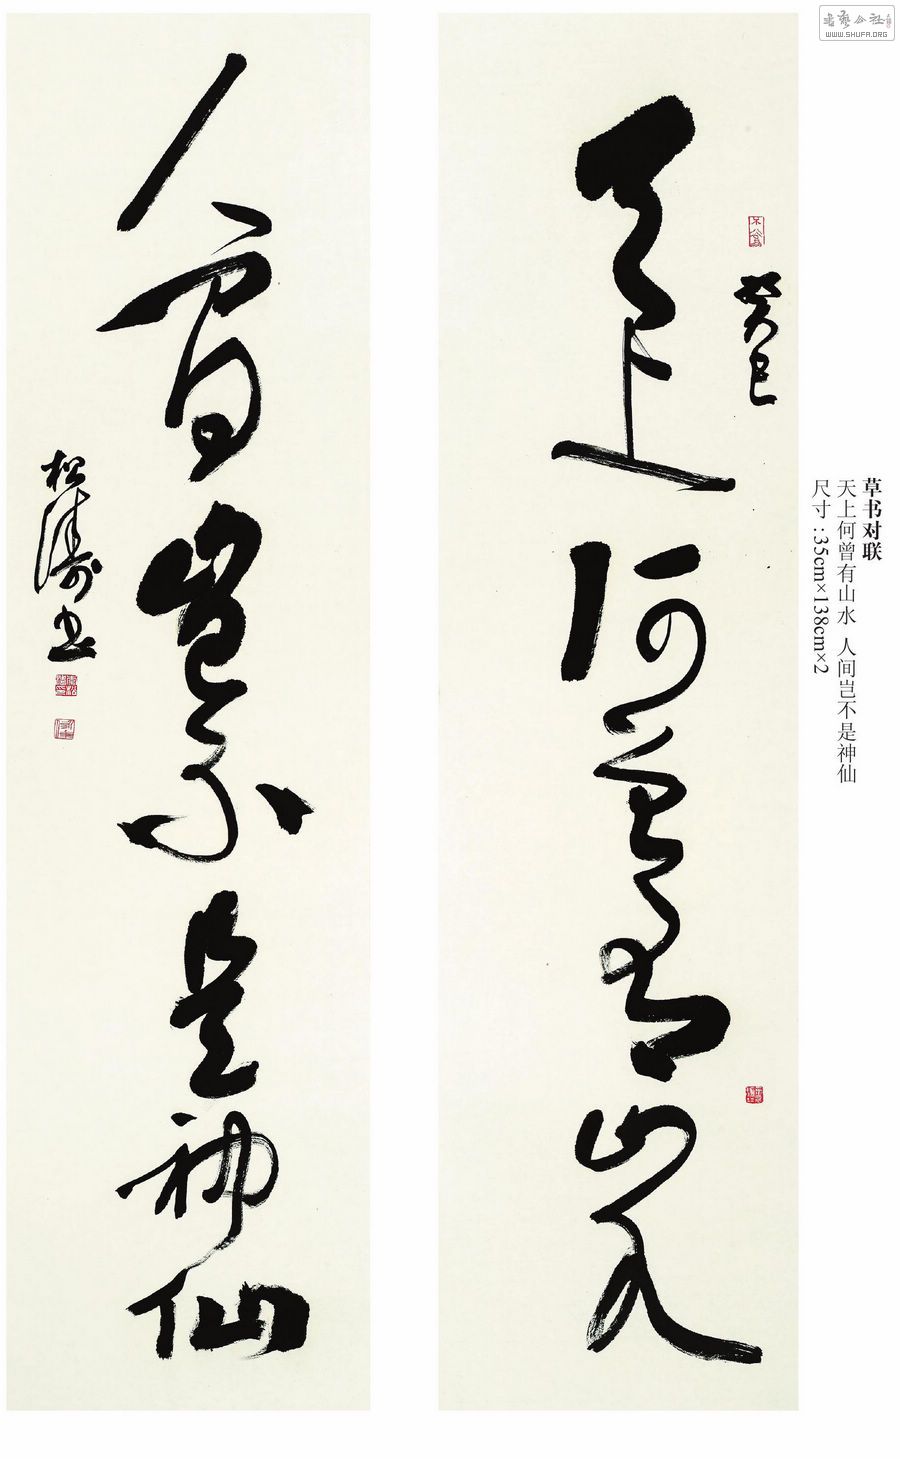 天上何曾有山水
癸巳
人间岂不是神仙
松涛书
草书对联
天上何曾有山水 人间岂不是神仙
尺寸:35cm×138cm×2
书艺公社
WWW.SHUFA.ORG